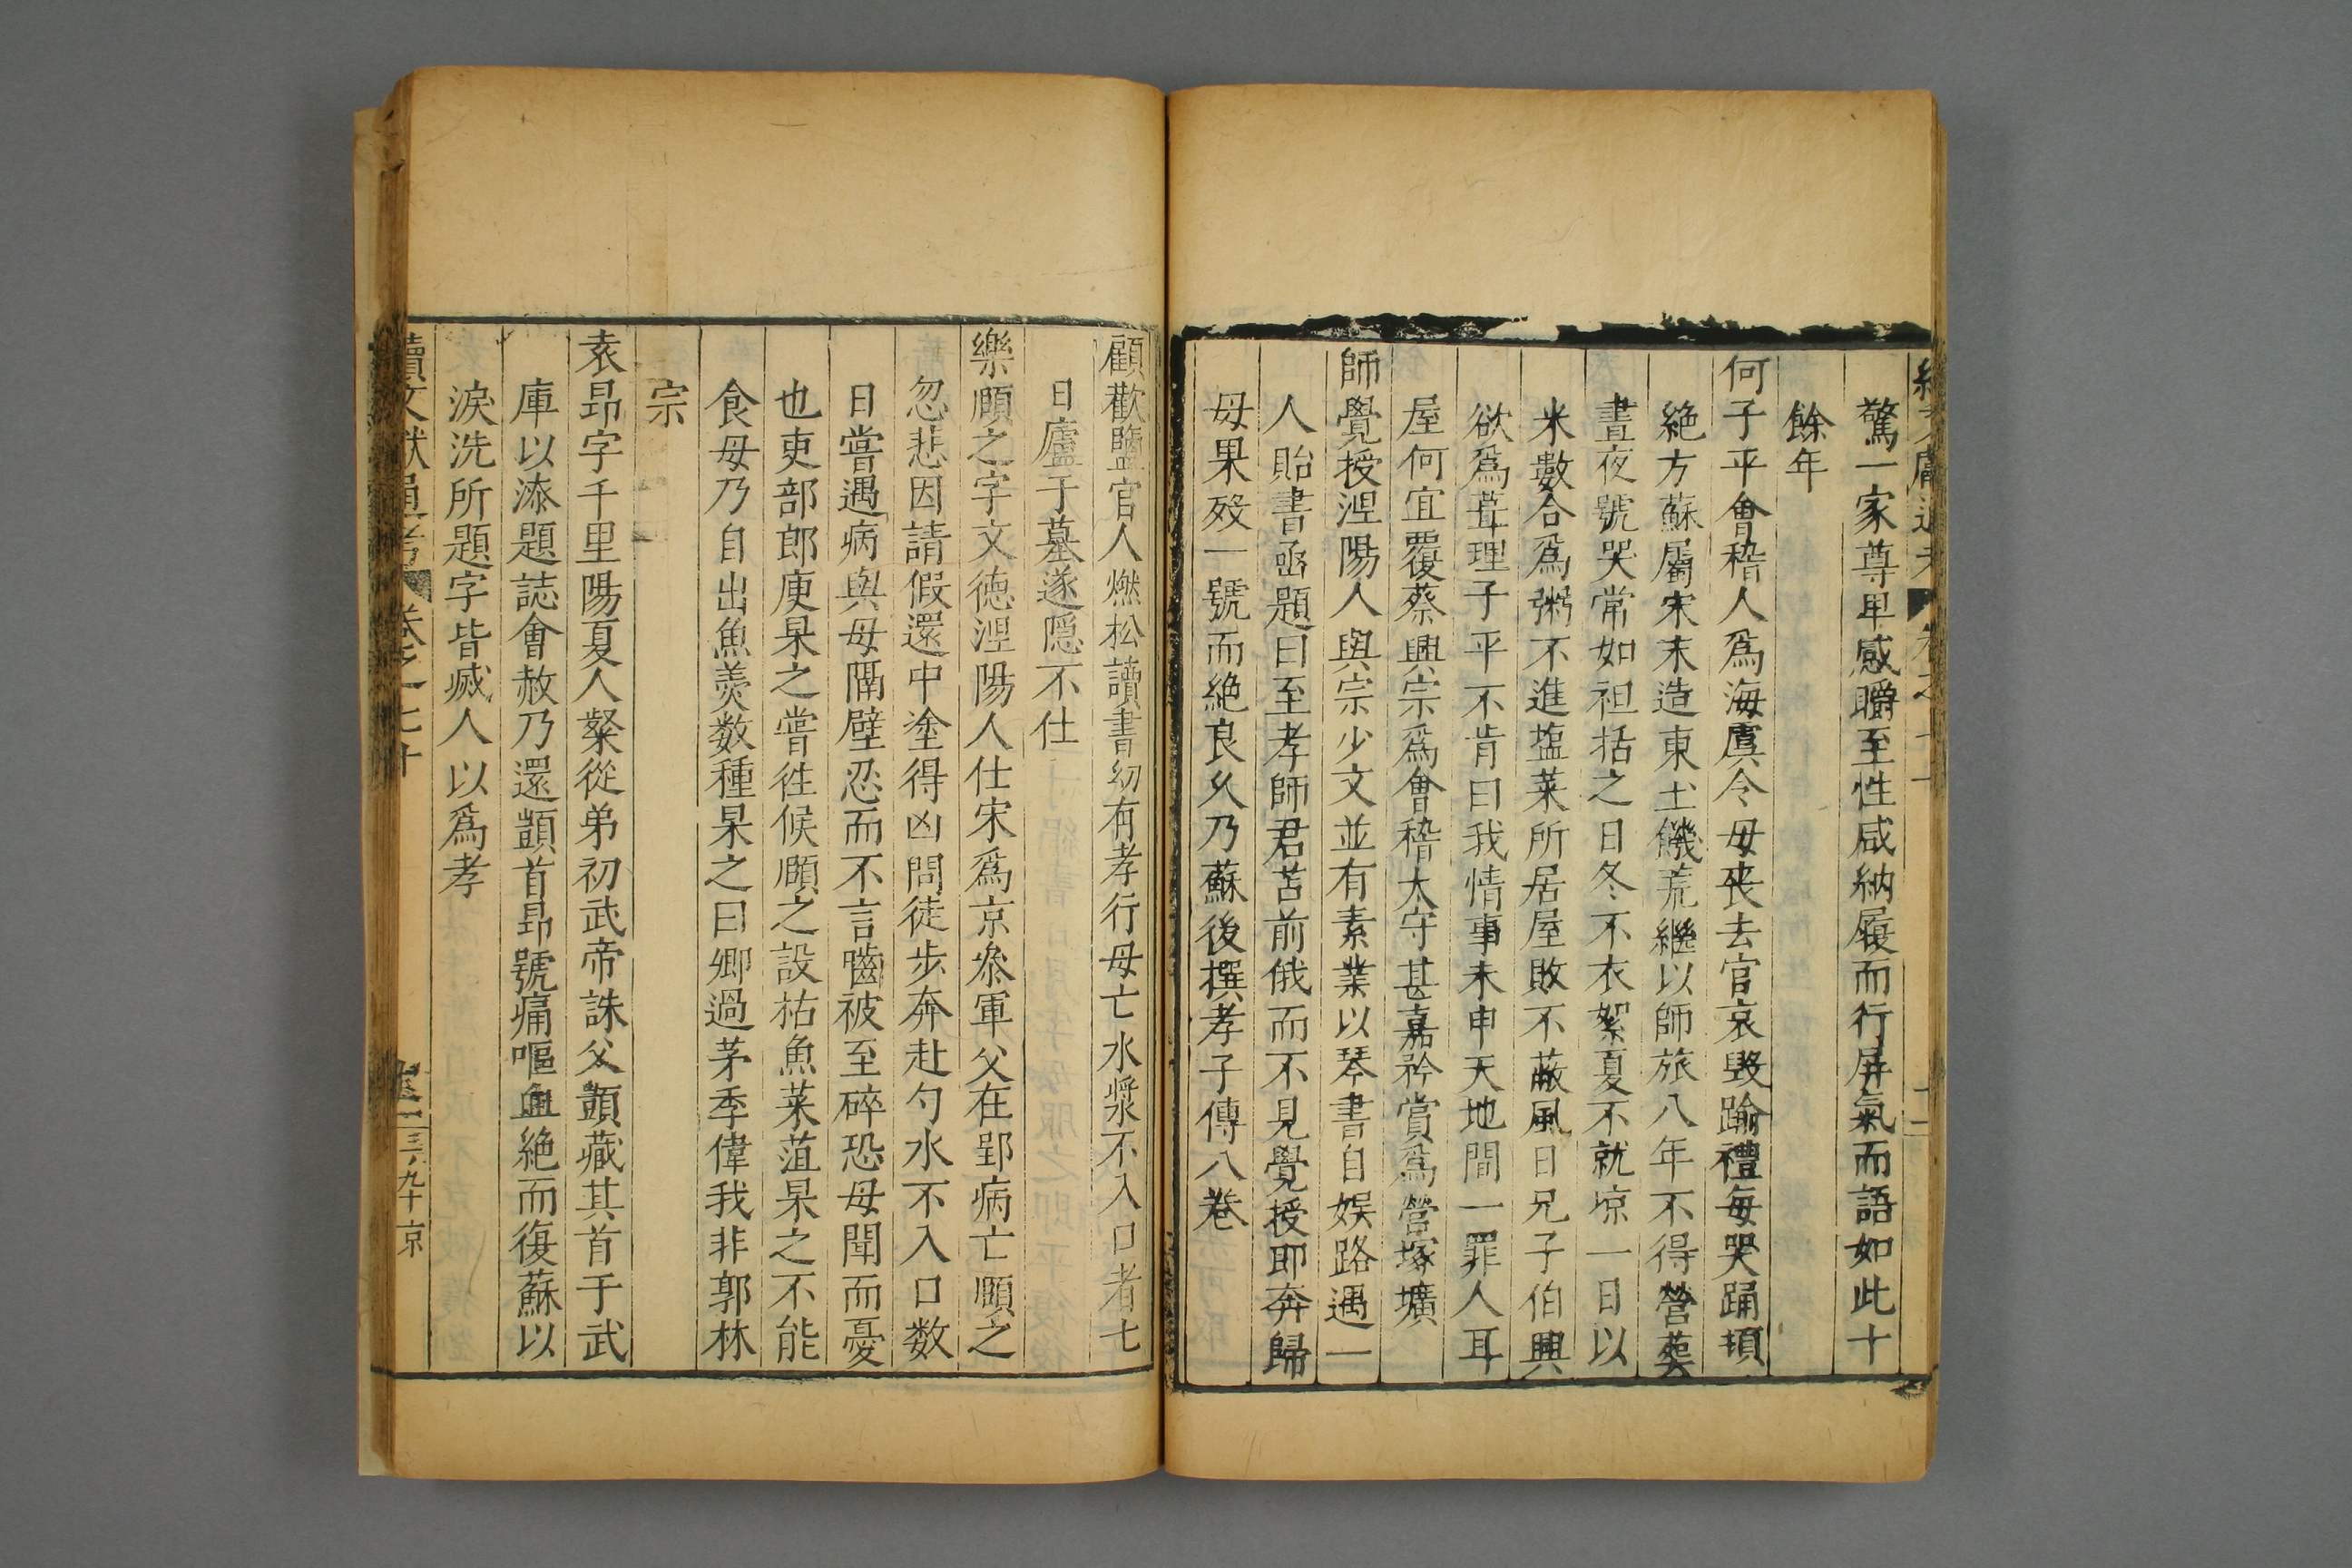 驚一家尊卑感矚至性咸納履而行屏氣而語如此十
餘年
何子平會稽人爲海虞令母喪去官哀毁踰禮每哭踊頓
絶方蘇屬宋末造東土饑荒繼以師旅八年不得營葬
晝夜號哭常如袒括之日冬不衣絮夏不就凉一日以
米數合爲粥不進塩菜所居屋敗不蔽風日兄子伯興
欲爲葺理子平不肯曰我情事未申天地間一罪人耳
屋何宜覆蔡興宗爲會稽太守甚嘉矜賞爲營塚壙
師覺授涅陽人與宗少文並有素業以琴書自娱路遇一
人貽書函題曰至孝師君苫前俄而不見覺授即奔歸
母果殁一號而絶良乆乃蘇後撰孝子傳八卷
顧歡鹽官人燃松讀書幼有孝行母亡水漿不入口者七
日廬于墓遂隠不仕
樂頥之字文德涅陽人仕宋爲京叅軍父在郢病亡頥之
忽悲因請假還中塗得凶問徒步奔赴勺水不入口数
日嘗遇病與母隔壁忍而不言嚙被至碎恐母聞而憂
也吏部郎庾杲之嘗徃候頥之設枯魚菜菹杲之不能
食母乃自出魚羮数種杲之曰卿過茅季偉我非郭林
宗
袁昂字千里陽夏人粲從弟初武帝誅父顗藏其首于武
庫以漆題誌會赦乃還顗首昂號痛嘔血絶而復蘇以
淚洗所題字皆滅人以爲孝
續文獻通考 卷之七十